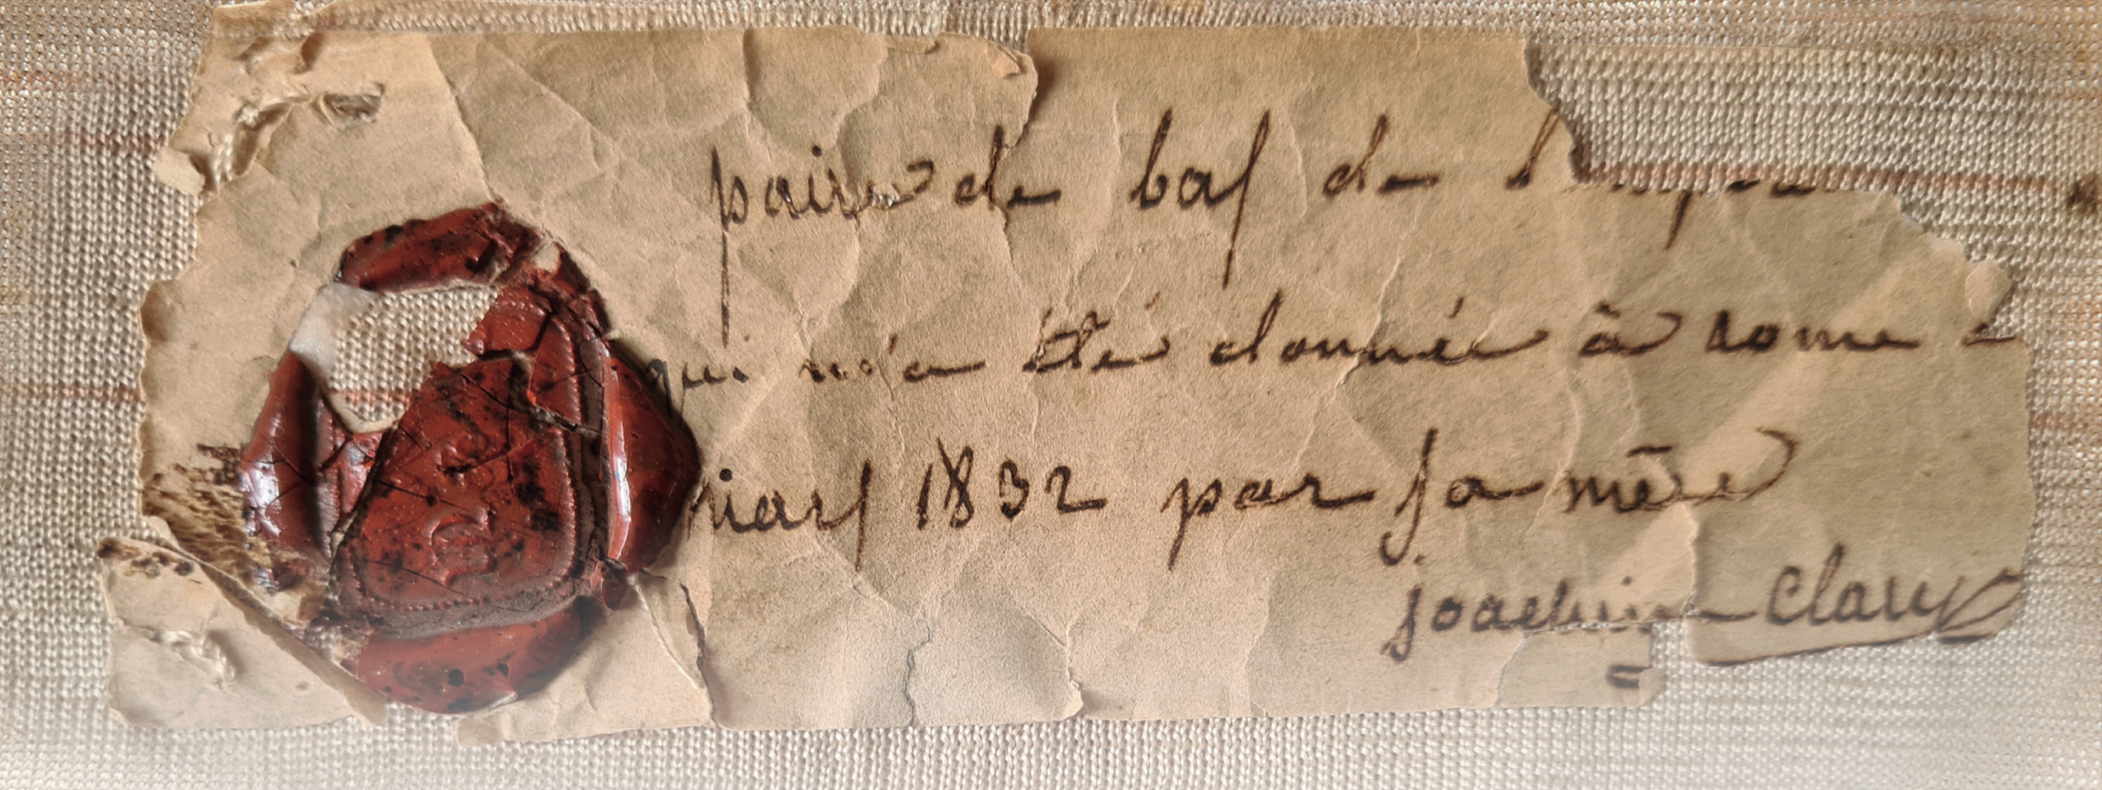 paire de bas de l'emper
qui m'a été donnée à rome
mars 1832 par sa mère
joachim Clary